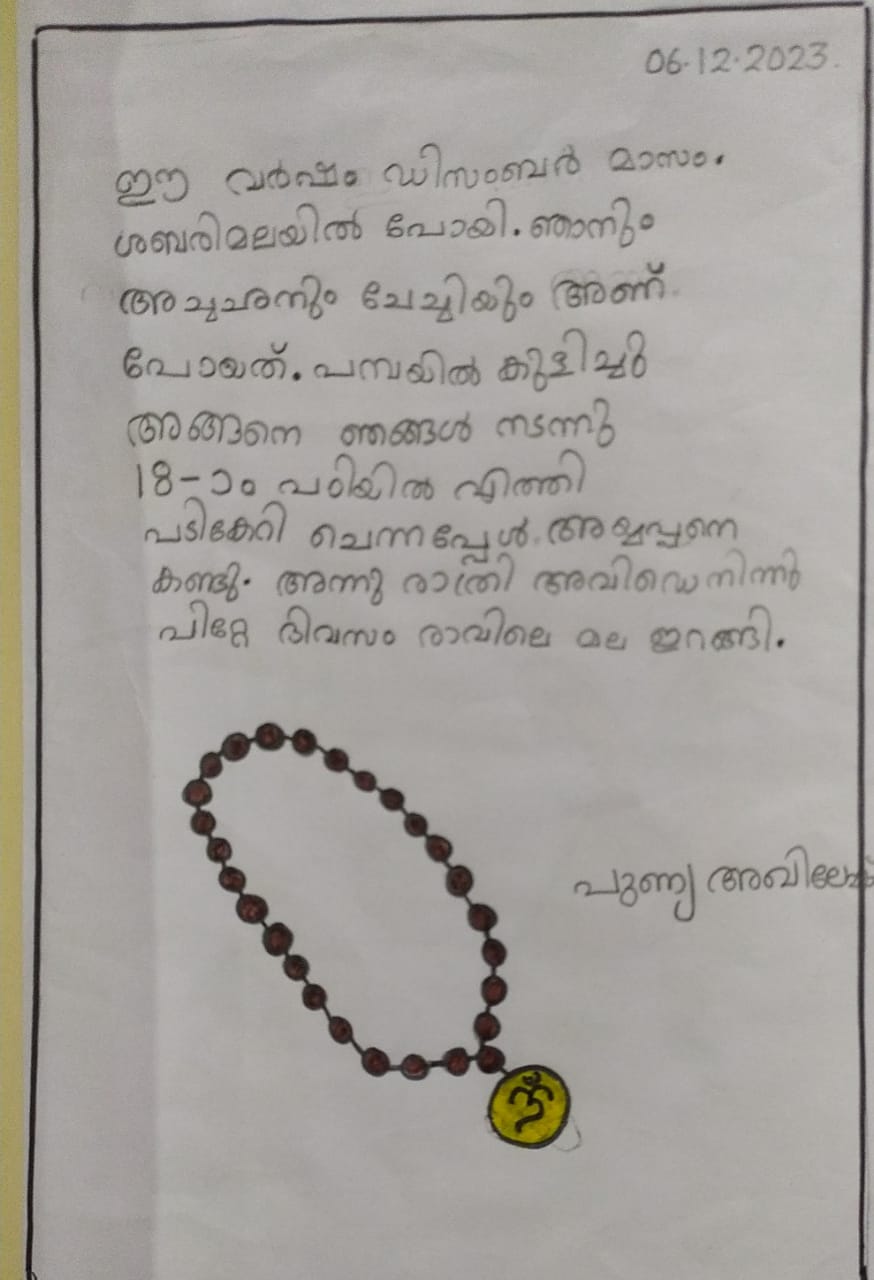 06.12.2023.
ഈ വർഷം ഡിസംബർ മാസം.
ശബരിമലയിൽ പോയി. ഞാനും
അച്ചനും ചേച്ചിയും അണ്
പോയത്. പമ്പയിൽ കുളിച്ചു
അങ്ങനെ ഞങ്ങൾ നടന്നു
18-ാം പഠിയിൽ എത്തി
പടികേറി ചെന്നപ്പേൾ. അയ്യപ്പനെ
കണ്ടു. അന്നു രാത്രി അവിഡെനിന്നു
പിറ്റേ ദിവസം രാവിലെ മല ഇറങ്ങി.
പുണ്യ
ॐ